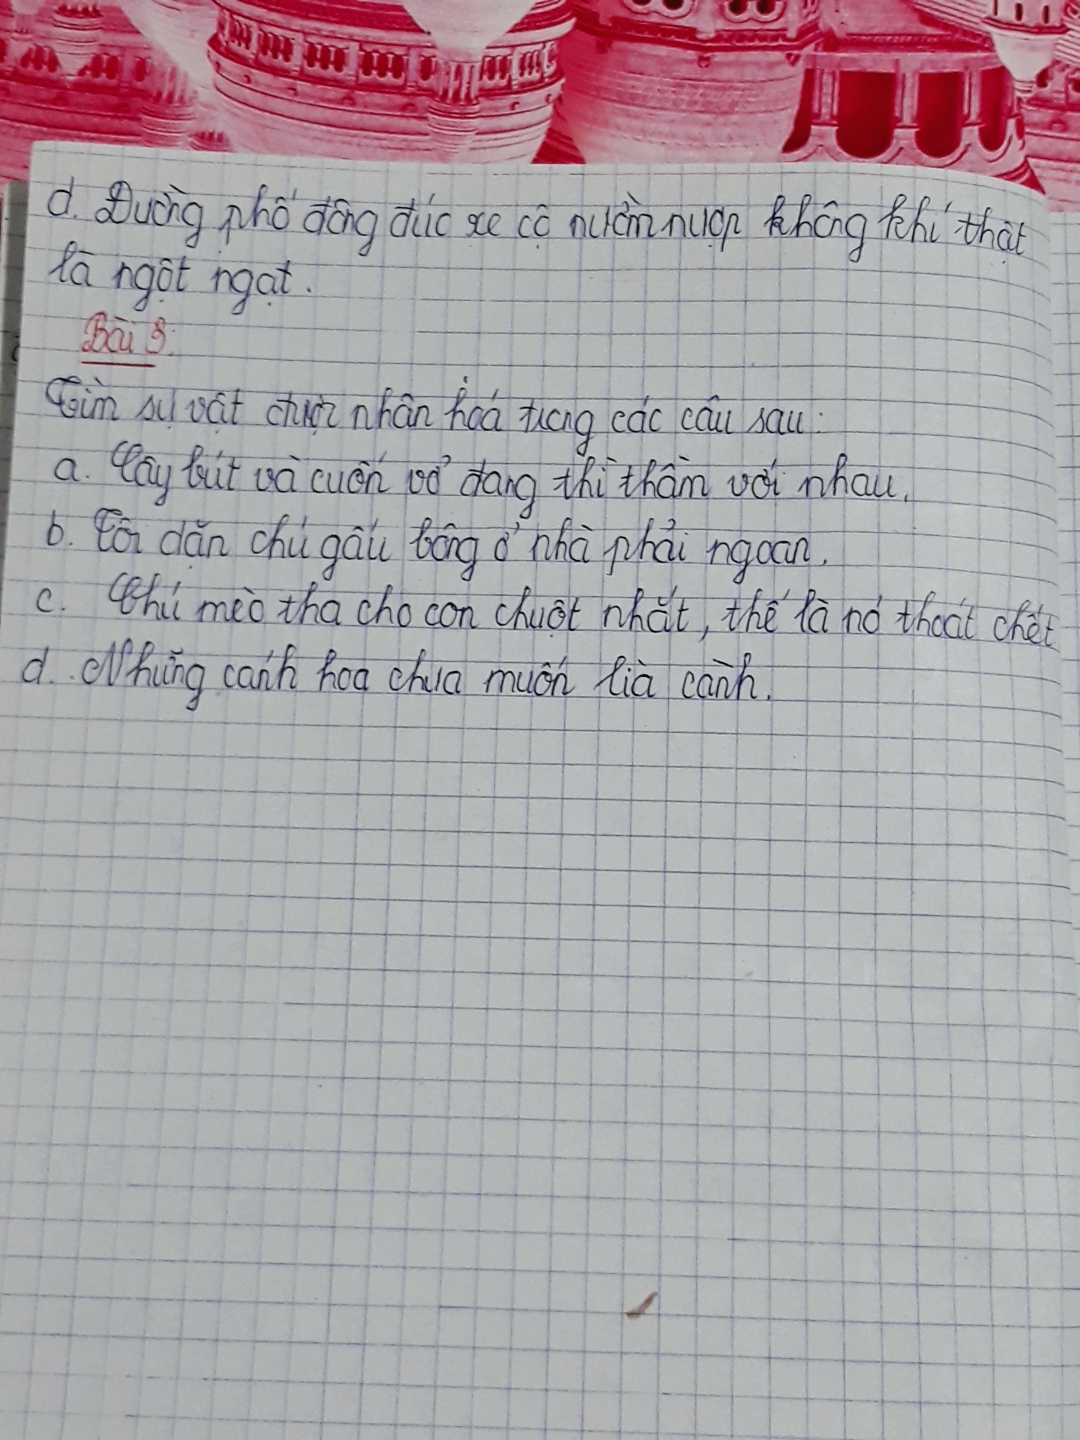 d. Đường phố đông đúc xe cộ nườm nượp không khí thật
là ngột ngạt.
Bài 3:
Tìm sự vật được nhân hoá trong các câu sau:
a. Cây bút và cuốn vở đang thì thầm với nhau.
b. Tôi dặn chú gấu bông ở nhà phải ngoan.
c. Chú mèo tha cho con chuột nhắt, thế là nó thoát chết
d. Những cánh hoa chưa muốn lìa cành.